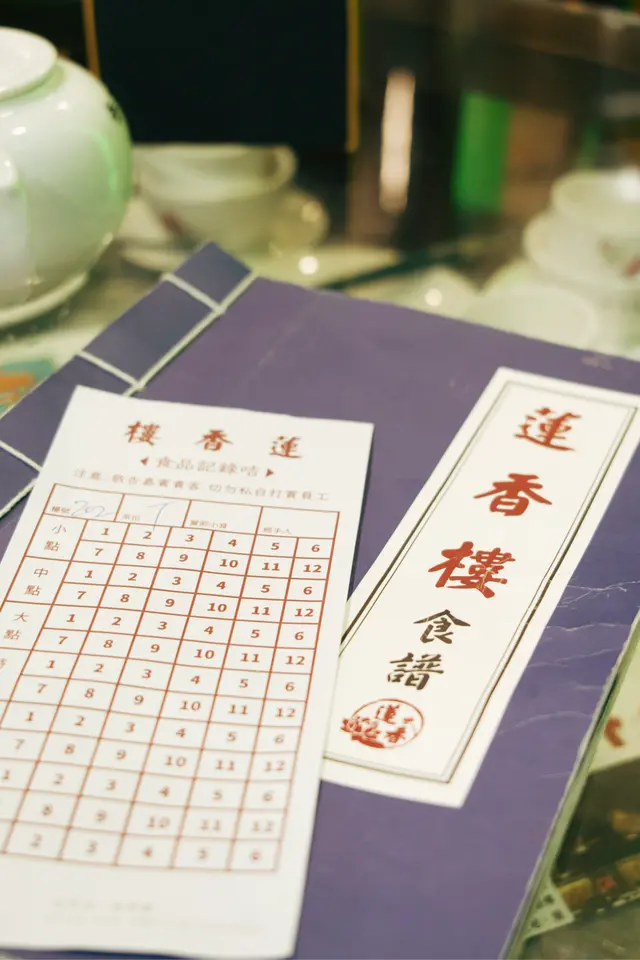 蓮香樓
食品記錄咭
注意 敬告嘉賓貴客 切勿私自打賞員工
202
小點 1 2 3 4 5 6
7 8 9 10 11 12
中點 1 2 3 4 5 6
7 8 9 10 11 12
大點 1 2 3 4 5 6
7 8 9 10 11 12
1 2 3 4 5 6
7 8 9 10 11 12
1 2 3 4 5 6
7 8 9 10 11 12
1 2 3 4 5 6
8 9 10 11 12
2 3 4 5 6
蓮香樓食譜
蓮香